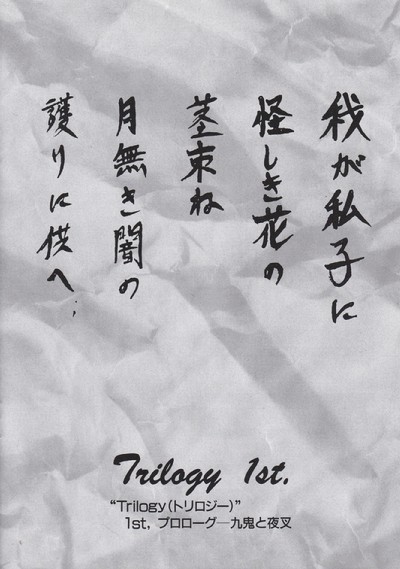 我が私子に
怪しき花の
茎束ね
月無き闇の
護りに供へ…
Trilogy 1st.
“Trilogy（トリロジー）”
1st, プロローグ─九鬼と夜叉